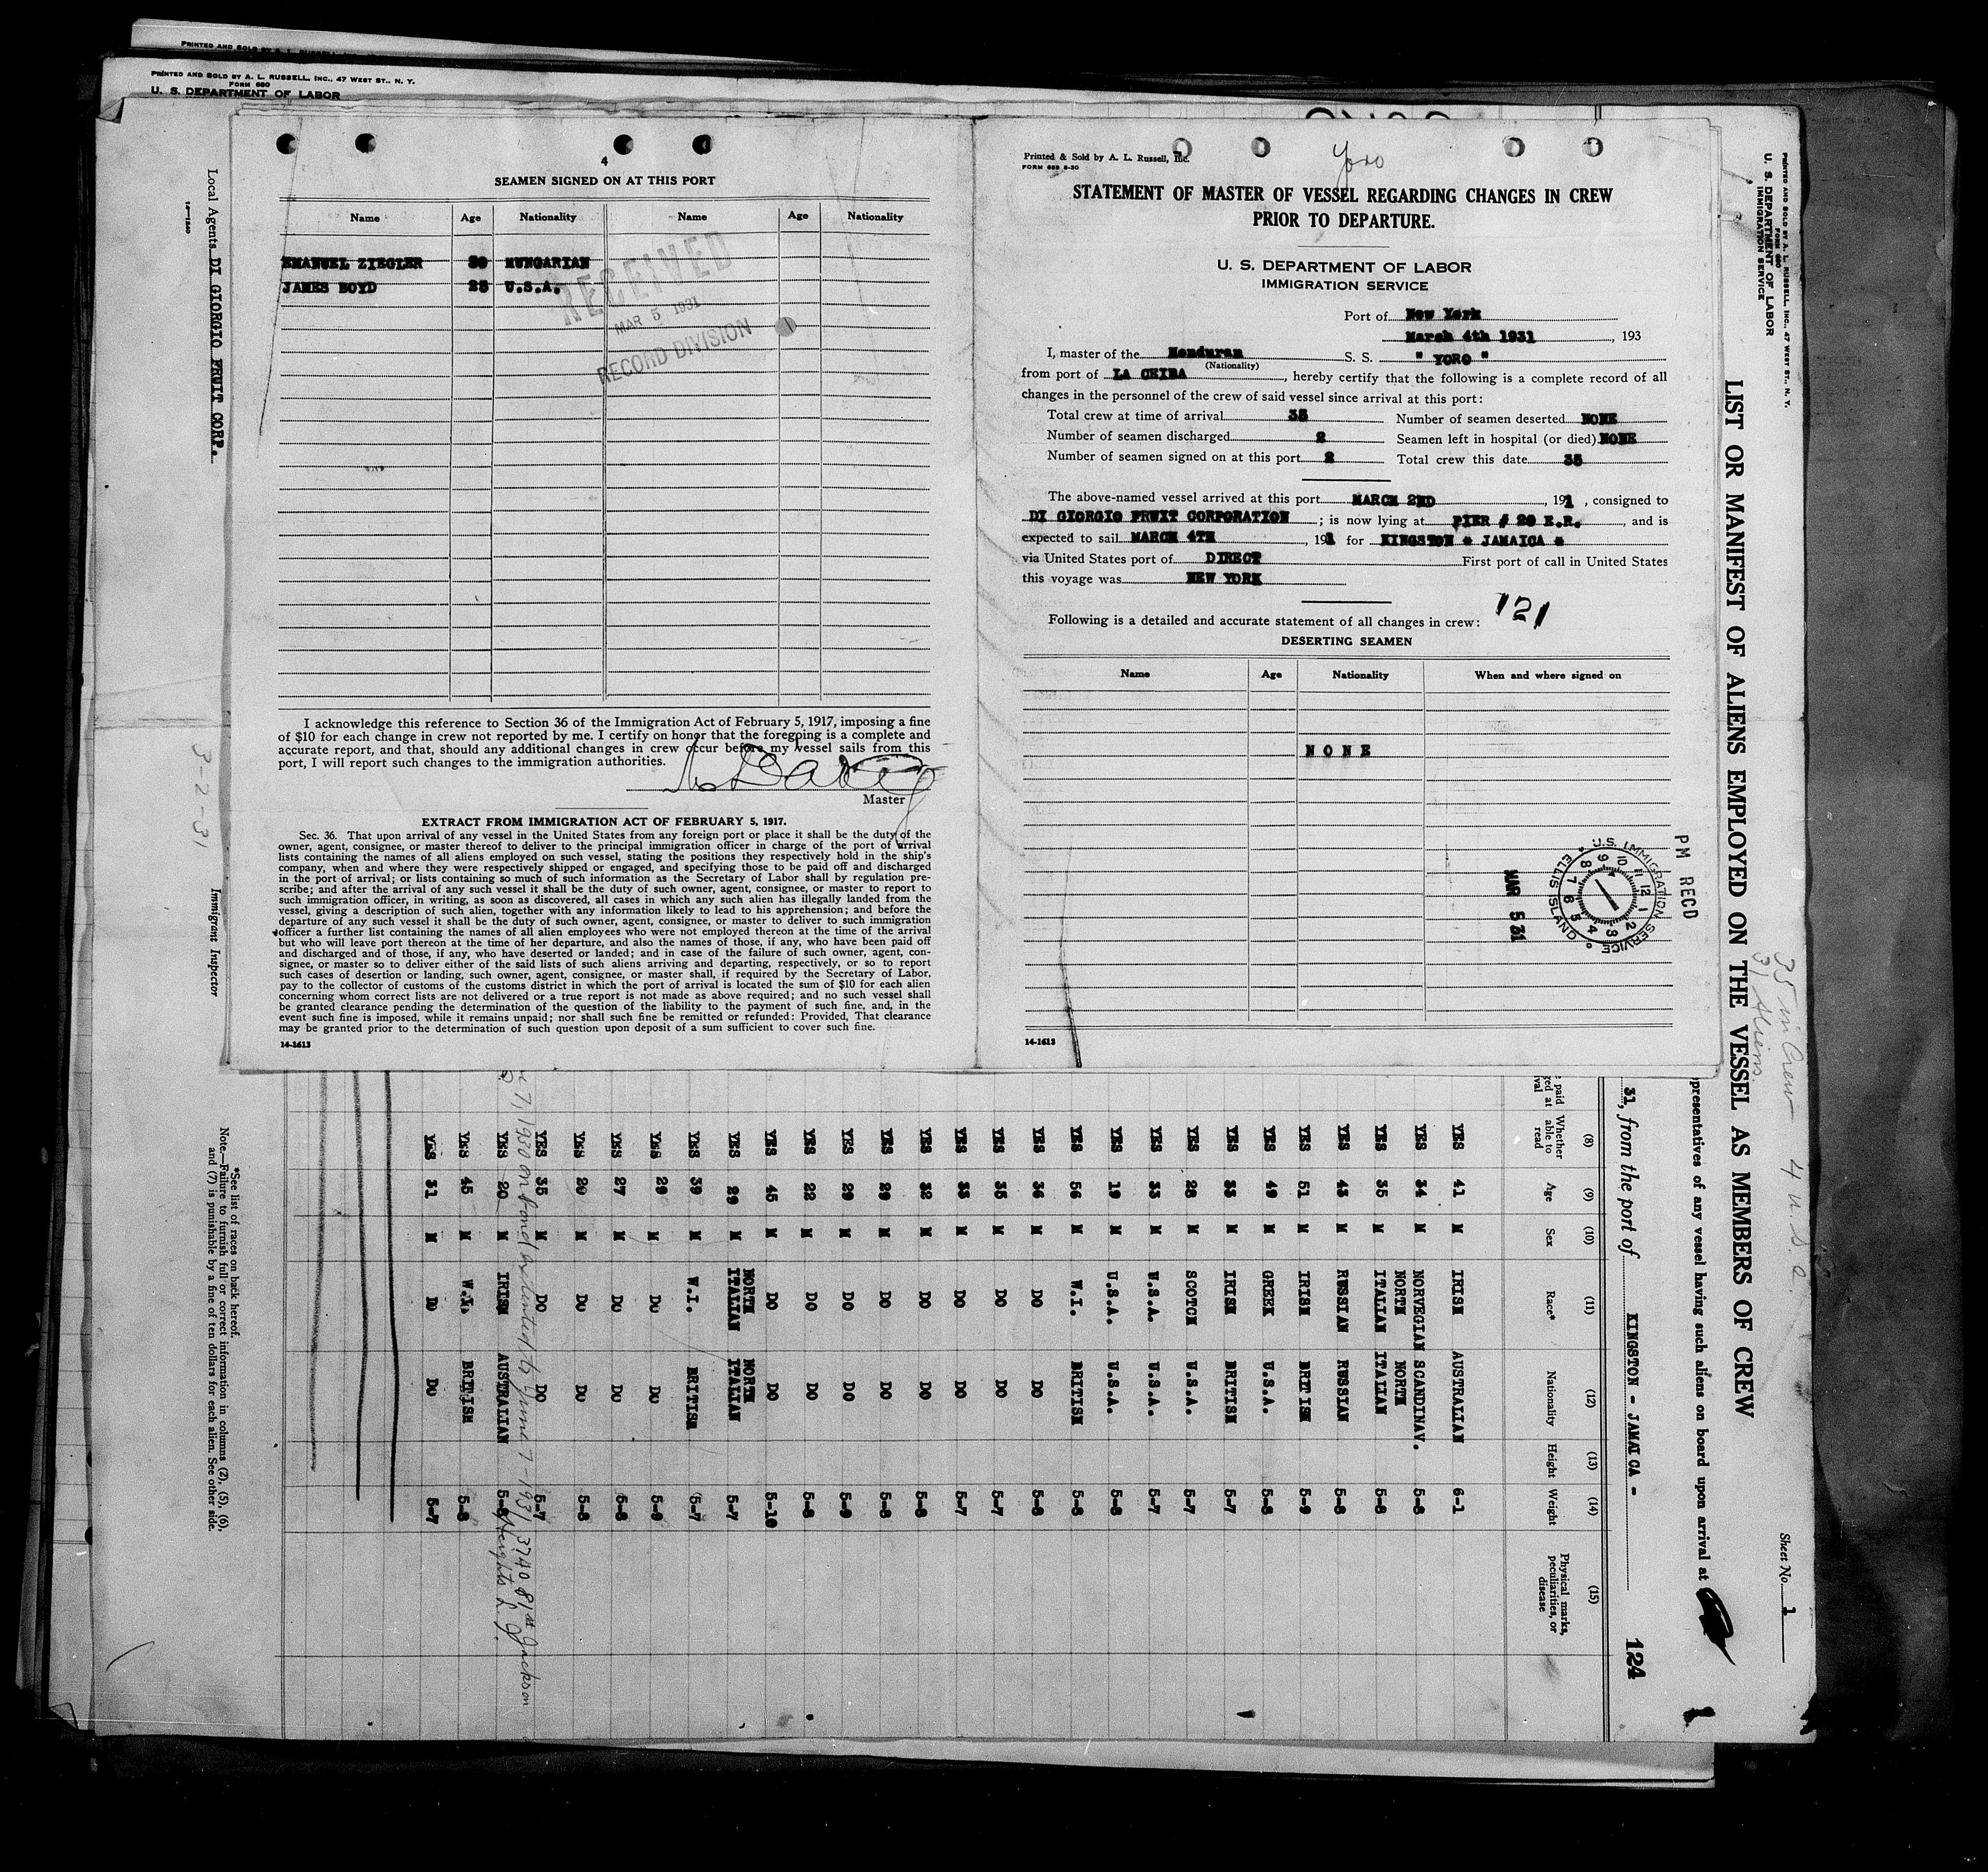 PRINTED AND SOLD BY A. L. RUSSELL, INC., 47 WEST ST., N. Y.
FORM 680
U. S. DEPARTMENT OF LABOR
4
SEAMEN SIGNED ON AT THIS PORT
Name Age Nationality Name Age Nationality
EMANUEL ZIEGLER HUNGARIAN
JAMES BOYD 25 U.S.A.
RECEIVED
MAR 5 1931
RECORD DIVISION
I acknowledge this reference to Section 36 of the Immigration Act of February 5, 1917, imposing a fine
of $10 for each change in crew not reported by me. I certify on honor that the foregoing is a complete and
accurate report, and that, should any additional changes in crew occur before my vessel sails from this
port, I will report such changes to the immigration authorities.
Master
EXTRACT FROM IMMIGRATION ACT OF FEBRUARY 5, 1917.
Sec. 36. That upon arrival of any vessel in the United States from any foreign port or place it shall be the duty of the
owner, agent, consignee, or master thereof to deliver to the principal immigration officer in charge of the port of arrival
lists containing the names of all aliens employed on such vessel, stating the positions they respectively hold in the ship's
company, when and where they were respectively shipped or engaged, and specifying those to be paid off and discharged
in the port of arrival; or lists containing so much of such information as the Secretary of Labor shall by regulation pre-
scribe; and after the arrival of any such vessel it shall be the duty of such owner, agent, consignee, or master to report to
such immigration officer, in writing, as soon as discovered, all cases in which any such alien has illegally landed from the
vessel, giving a description of such alien, together with any information likely to lead to his apprehension; and before the
departure of any such vessel it shall be the duty of such owner, agent, consignee, or master to deliver to such immigration
officer a further list containing the names of all alien employees who were not employed thereon at the time of the arrival
but who will leave port thereon at the time of her departure, and also the names of those, if any, who have been paid off
and discharged and of those, if any, who have deserted or landed; and in case of the failure of such owner, agent, con-
signee, or master so to deliver either of the said lists of such aliens arriving and departing, respectively, or so to report
such cases of desertion or landing, such owner, agent, consignee, or master shall, if required by the Secretary of Labor,
pay to the collector of customs of the customs district in which the port of arrival is located the sum of $10 for each alien
concerning whom correct lists are not delivered or a true report is not made as above required; and no such vessel shall
be granted clearance pending the determination of the question of the liability to the payment of such fine, and, in the
event such fine is imposed, while it remains unpaid; nor shall such fine be remitted or refunded: Provided, That clearance
may be granted prior to the determination of such question upon deposit of a sum sufficient to cover such fine.
14-1613
Printed & Sold by A. L. Russell, Inc.
FORM 689 8-30
Yoro
STATEMENT OF MASTER OF VESSEL REGARDING CHANGES IN CREW
PRIOR TO DEPARTURE.
U. S. DEPARTMENT OF LABOR
IMMIGRATION SERVICE
Port of New York
March 4th 1931, 193
I, master of the Honduran S. S. " YORO "
(Nationality)
from port of LA CEIBA, hereby certify that the following is a complete record of all
changes in the personnel of the crew of said vessel since arrival at this port:
Total crew at time of arrival 35 Number of seamen deserted NONE
Number of seamen discharged 2 Seamen left in hospital (or died) NONE
Number of seamen signed on at this port 2 Total crew this date 35
The above-named vessel arrived at this port MARCH 2ND, 191, consigned to
DI GIORGIO FRUIT CORPORATION; is now lying at PIER # 29 E.R., and is
expected to sail MARCH 4TH, 191 for KINGSTON * JAMAICA *
via United States port of DIRECT First port of call in United States
this voyage was NEW YORK
121
Following is a detailed and accurate statement of all changes in crew:
DESERTING SEAMEN
Name Age Nationality When and where signed on
NONE
PM RECD
U.S. IMMIGRATION SERVICE
ELLIS ISLAND
MAR 5 31
14-1613
Local Agents DI GIORGIO FRUIT CORP.
14-1540
3-2-31
Immigrant Inspector
*See list of races on back hereof.
Note.—Failure to furnish full or correct information in columns (2), (5), (6),
and (7) is punishable by a fine of ten dollars for each alien. See other side.
PRINTED AND SOLD BY A. L. RUSSELL, INC., 47 WEST ST., N. Y.
FORM 680
U. S. DEPARTMENT OF LABOR
IMMIGRATION SERVICE
Sheet No. 1
35 in Crew 4 U.S.C.
31 Aliens.
LIST OR MANIFEST OF ALIENS EMPLOYED ON THE VESSEL AS MEMBERS OF CREW
presentatives of any vessel having such aliens on board upon arrival at
31, from the port of KINGSTON - JAMAICA -
124
(8) (9) (10) (11) (12) (13) (14) (15)
Whether able to read Age Sex Race* Nationality Height Weight Physical marks, peculiarities, or disease
YES 41 M IRISH AUSTRALIAN 6-1
YES 34 M NORVEGIAN SCANDINAV. 5-8
YES 35 M NORTH ITALIAN NORTH ITALIAN 5-8
YES 43 M RUSSIAN RUSSIAN 5-8
YES 51 M IRISH BRITISH 5-9
YES 49 M GREEK U.S.A. 5-8
YES 33 M IRISH BRITISH 5-7
YES 28 M SCOTCH U.S.A. 5-7
YES 33 M U.S.A. U.S.A. 5-7
YES 19 M U.S.A. U.S.A. 5-8
YES 56 M W.I. BRITISH 5-8
YES 36 M DO DO 5-8
YES 35 M DO DO 5-7
YES 33 M DO DO 5-7
YES 32 M DO DO 5-8
YES 29 M DO DO 5-8
YES 29 M DO DO 5-9
YES 22 M DO DO 5-8
YES 45 M DO DO 5-10
YES 29 M NORTH ITALIAN NORTH ITALIAN 5-7
YES 39 M W.I. BRITISH 5-7
YES 29 M DO DO 5-9
YES 27 M DO DO 5-8
YES 20 M DO DO 5-8
YES 35 M DO DO 5-7
7, 1930 on bond extented to June 7-1931 3740 81st Jackson
Heights L. I.
YES 20 M IRISH AUSTRALIAN 5-8
YES 45 M W.I. BRITISH 5-8
YES 31 M DO DO 5-7